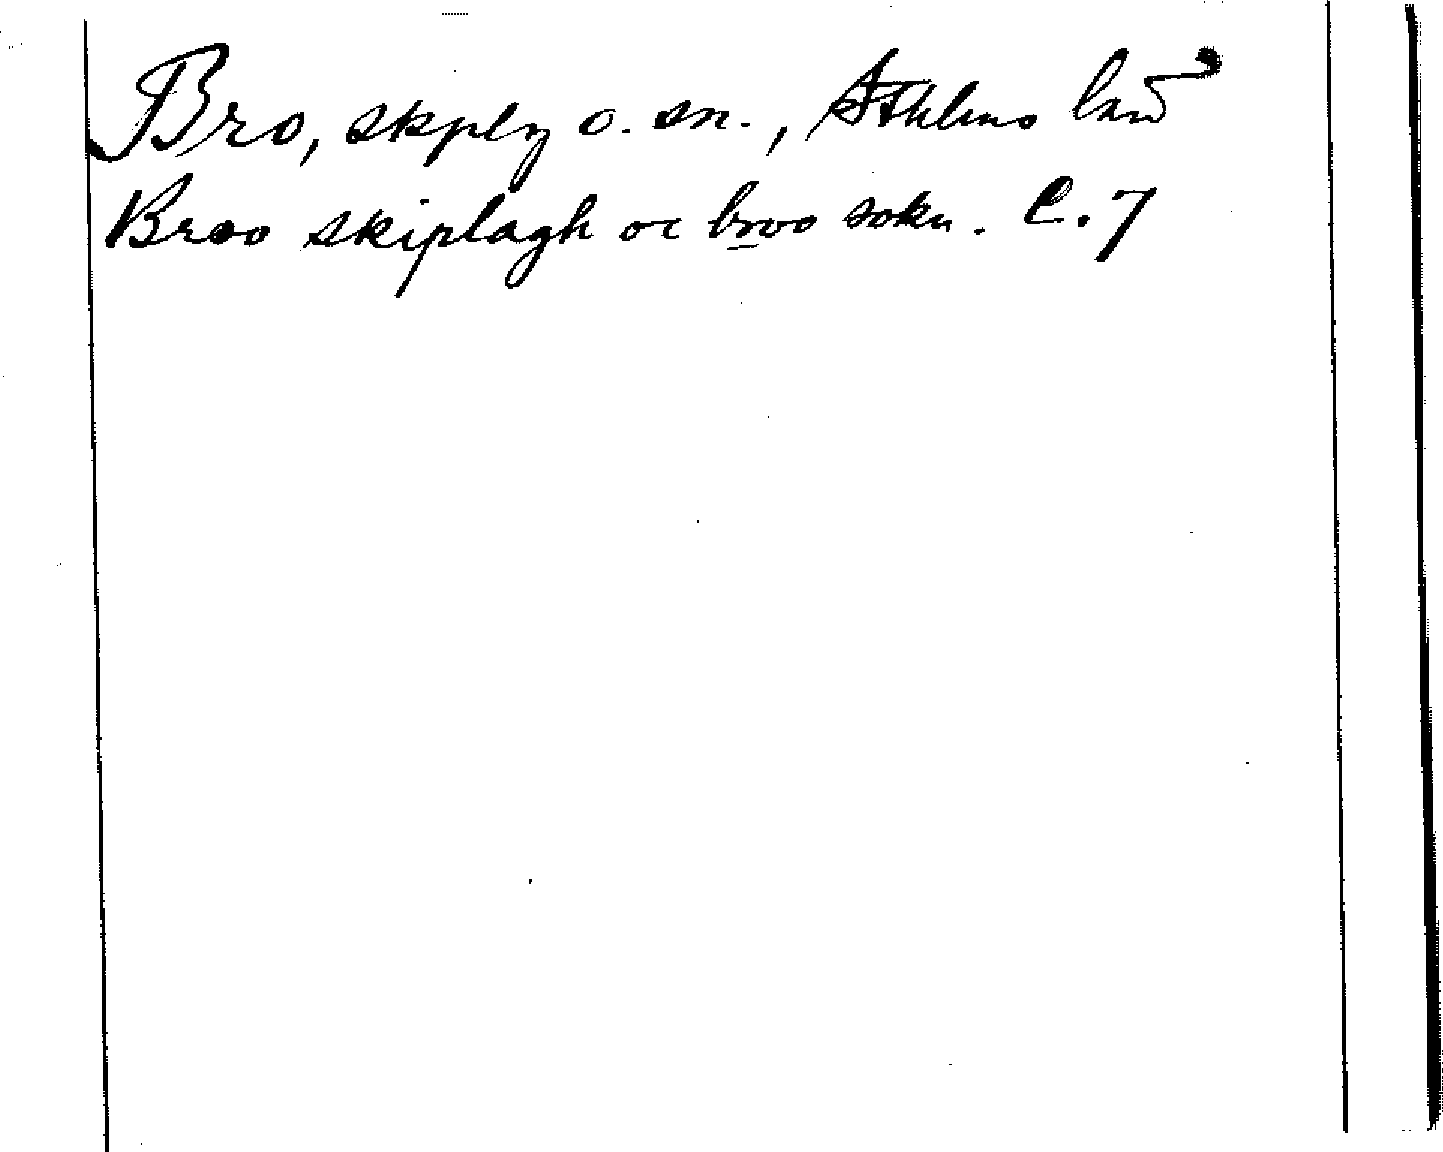 Bro, skplg o. sn., Sthlms län
Broo skiplagh oc broo sokn. C. 7